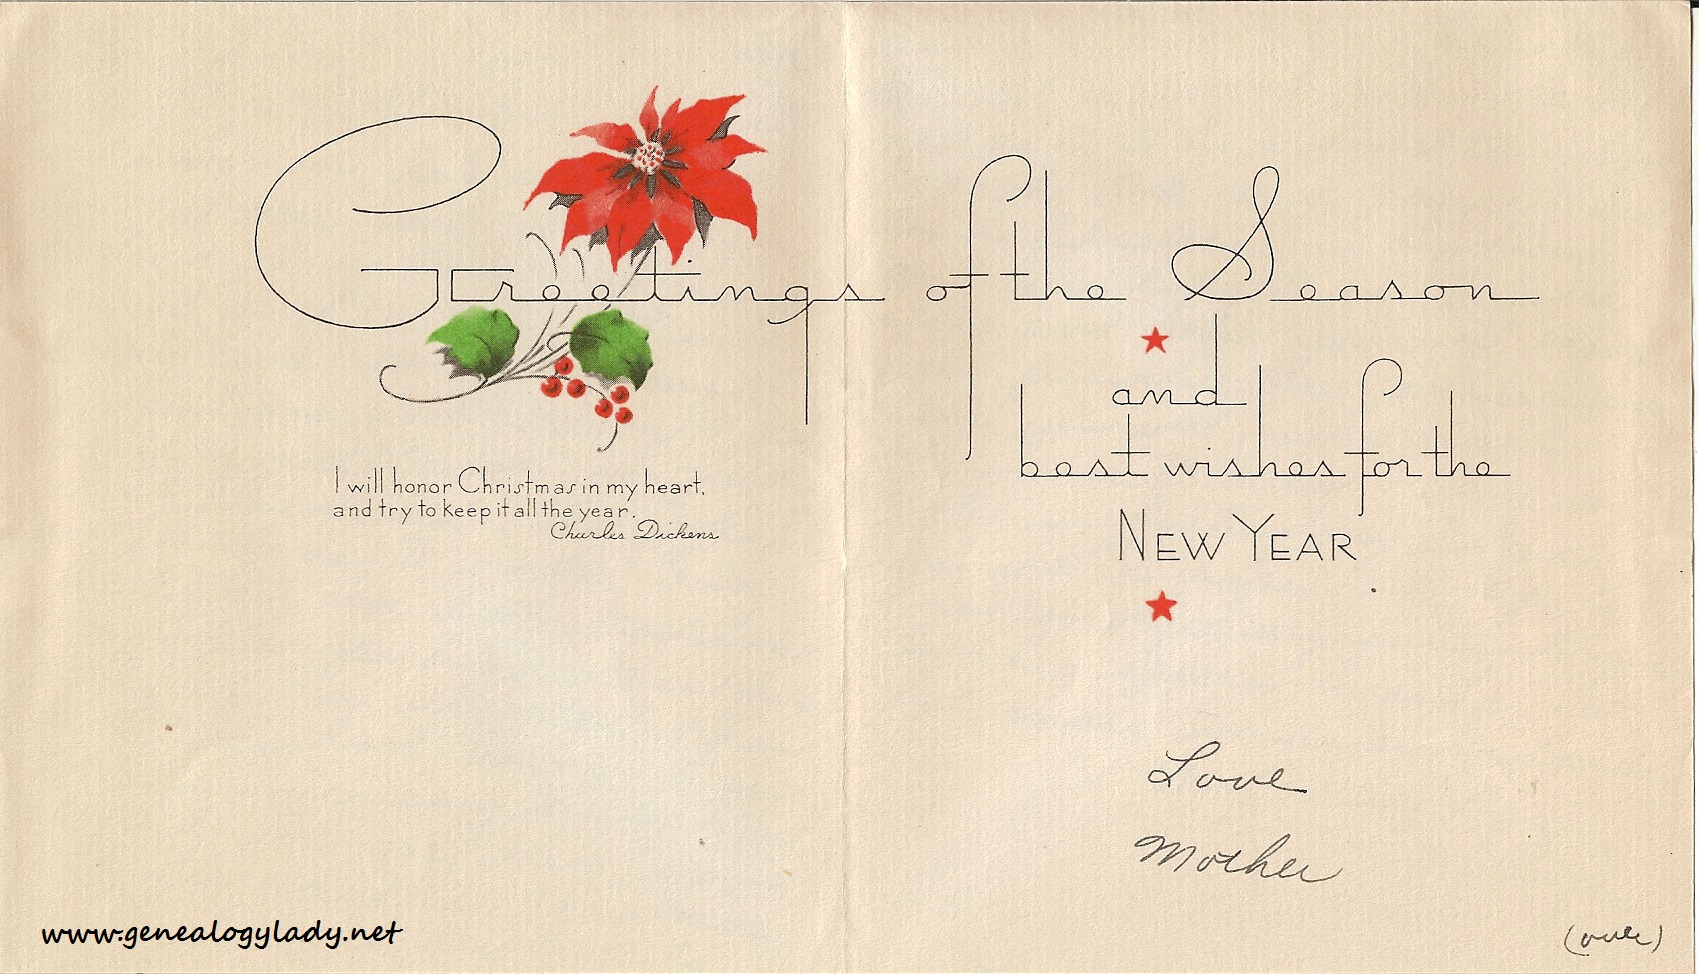 Greetings of the Season
and
best wishes for the
NEW YEAR
I will honor Christmas in my heart,
and try to keep it all the year.
Charles Dickens
Love
Mother
(over)
www.genealogylady.net